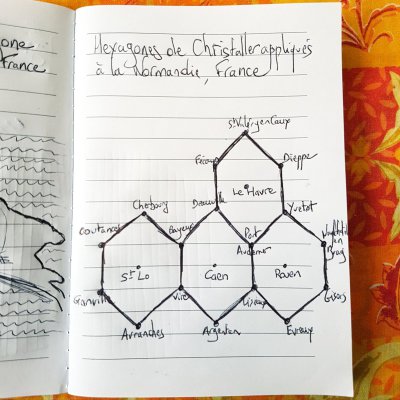 one
France
Hexagones de Christaller appliqués
à la Normandie, France
St Valéry en Caux
Fécamp
Dieppe
Le Havre
Deauville
Yvetot
Cherbourg
Coutances
Bayeux
Pont
Audemer
Neufchâtel
en
Bray
St Lo
Caen
Rouen
Granville
Vire
Lisieux
Gisors
Avranches
Argentan
Evreux